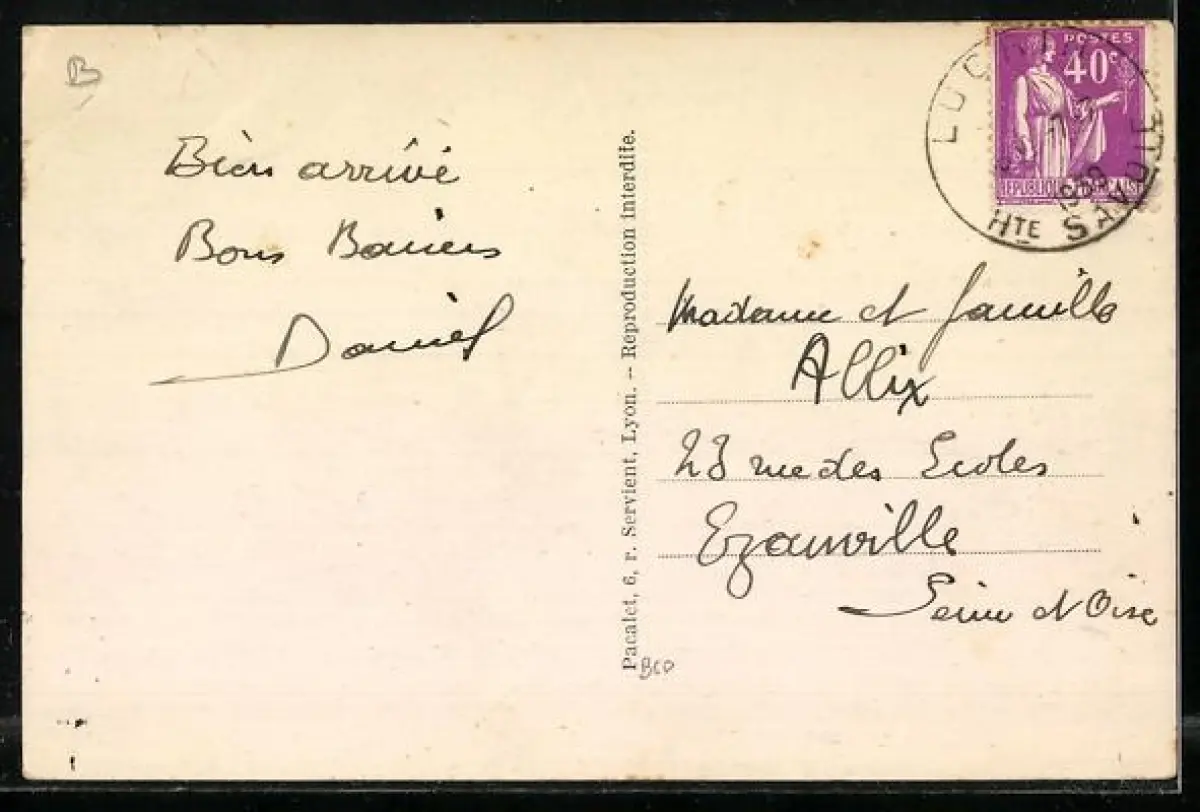 B
Bien arrivé
Bons Baisers
Daniel
Pacalet, 6, r. Servient, Lyon. – Reproduction interdite.
BCD
POSTES
40c
REPUBLIQUE FRANÇAISE
HTE SAVOIE
Madame et famille
Allix
23 rue des Ecoles
Ezanville
Seine et Oise